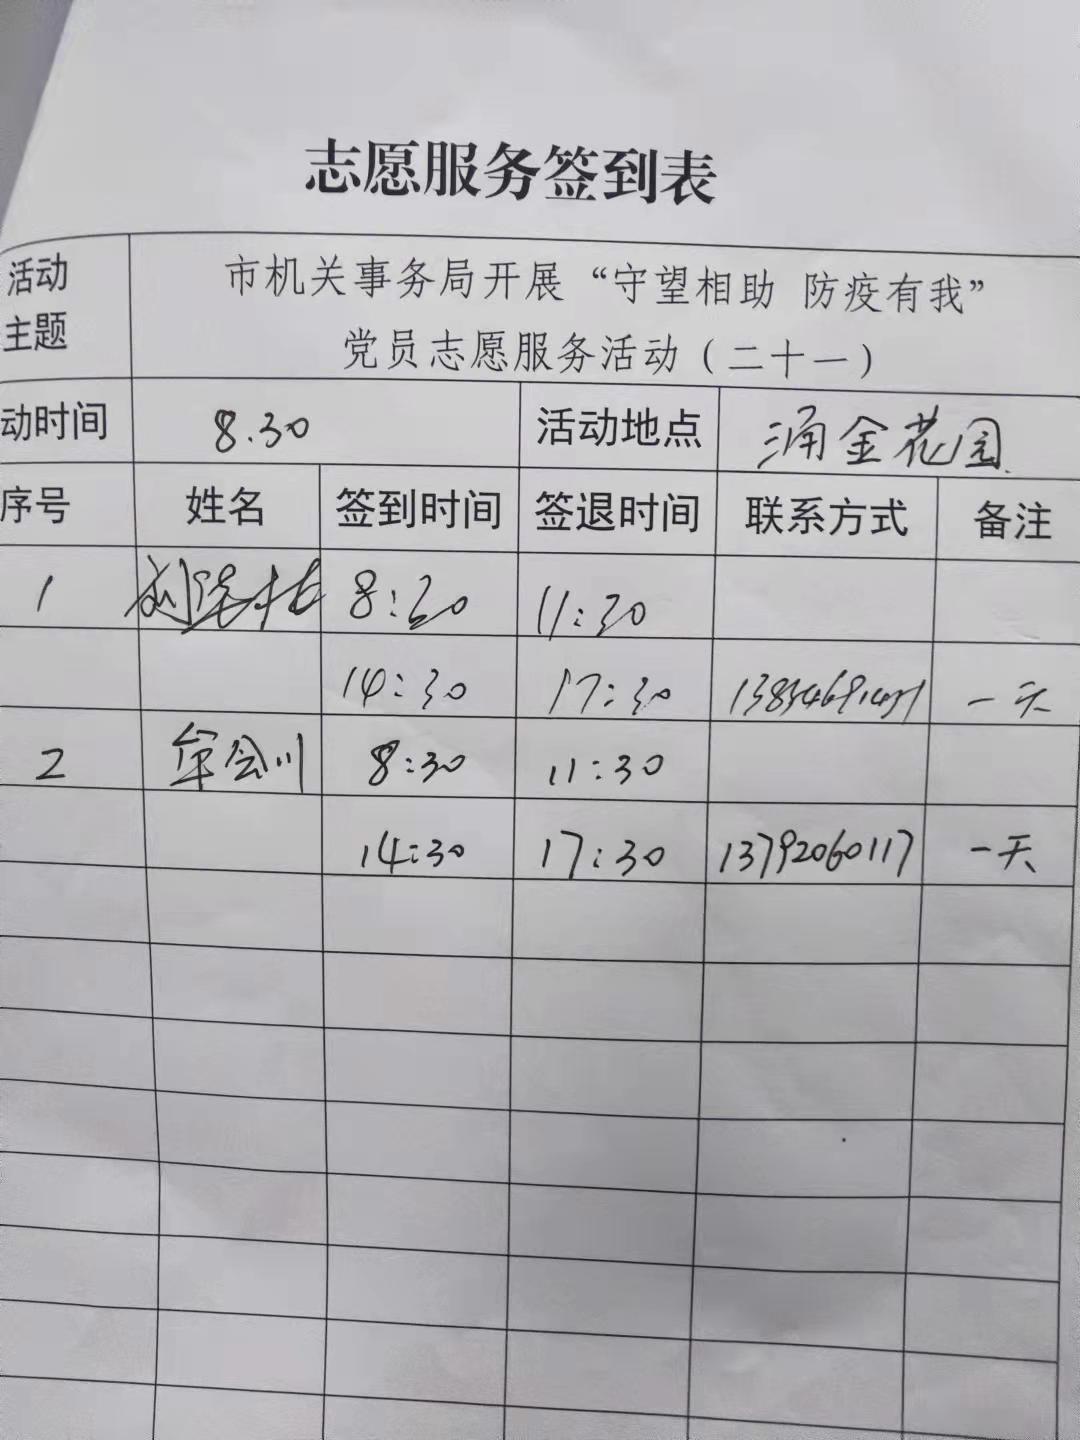 志愿服务签到表
活动主题 市机关事务局开展“守望相助 防疫有我”
党员志愿服务活动（二十一）
动时间 8.30 活动地点 涌金花园
序号 姓名 签到时间 签退时间 联系方式 备注
1 8:30 11:30
14:30 17:30 一天
2 牟会川 8:30 11:30
14:30 17:30 13792060117 一天